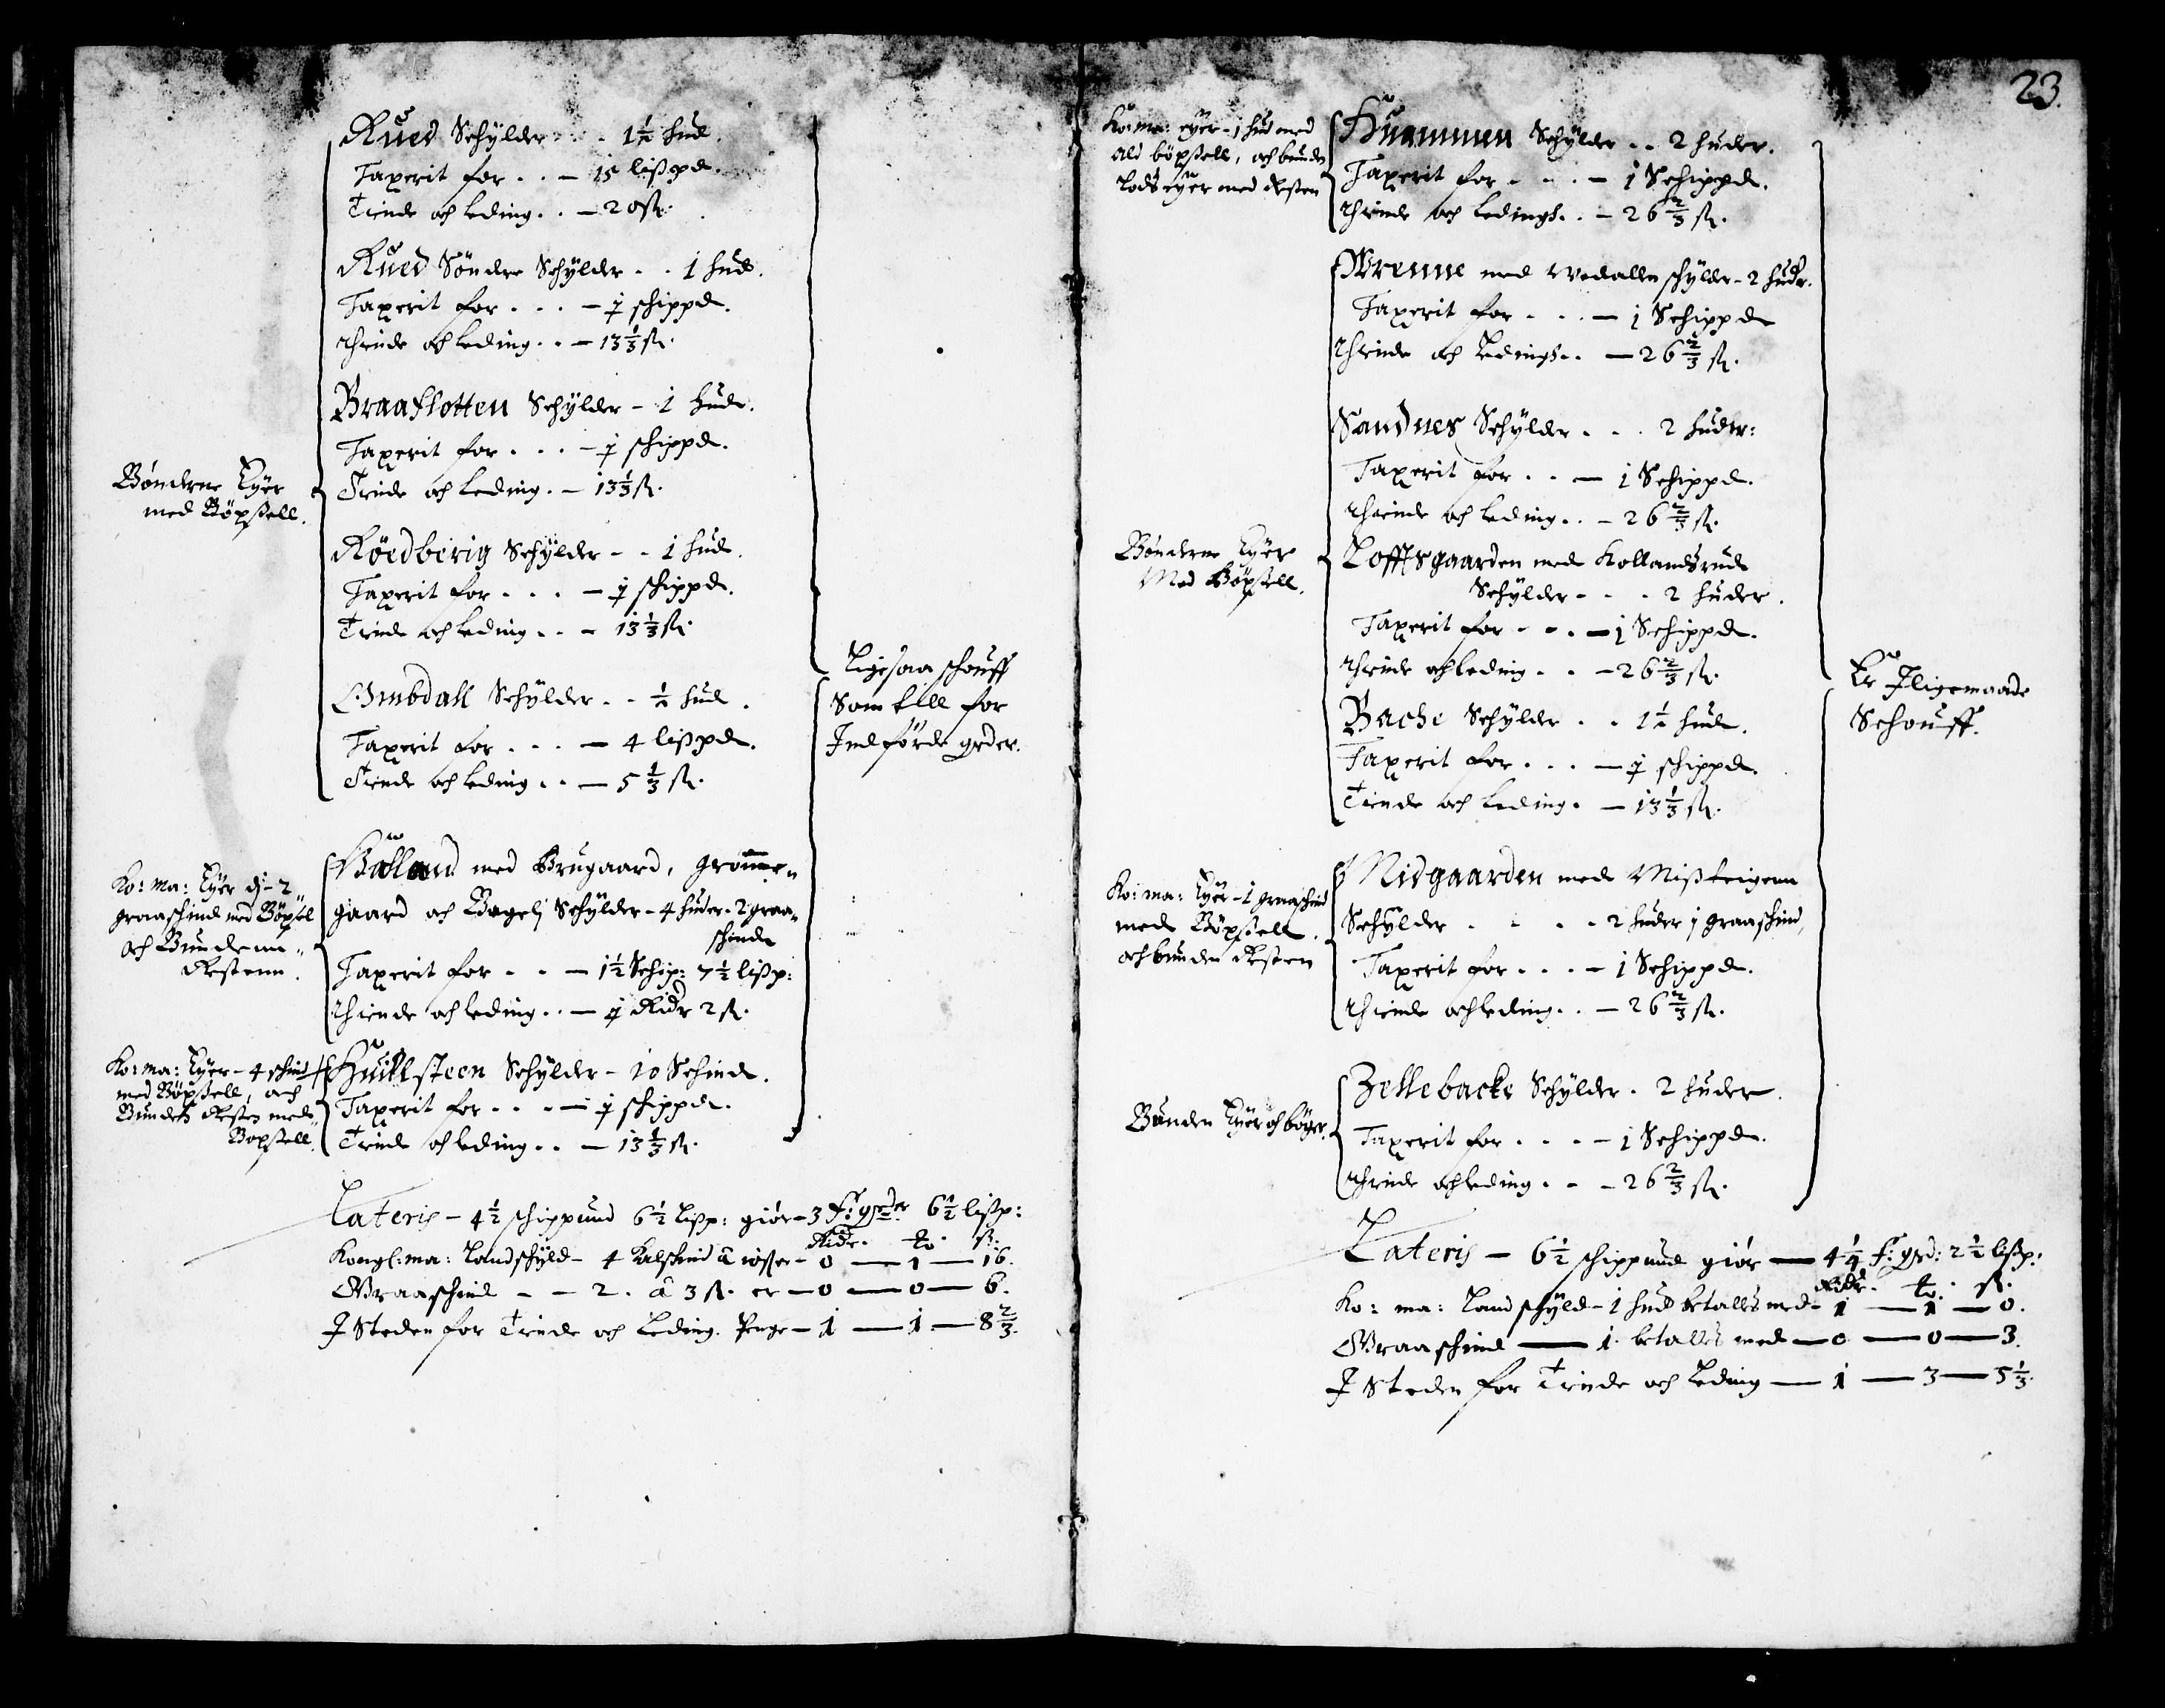 Rued Schylder - - - 1½ hud.
Taxerit for . . - 15 lißpd.
Tiende och leding . . - 20 ß.
Rued Söndre Schylder - . 1 hud.
Taxerit for . . . - ½ schippd.
Thiende och leding . . - 13⅓ ß.
Braaflotten Schylder - 1 hude.
Taxerit for . . . - ½ schippd.
Bønderne Eyer
med Böxßell.
Tiende och leding . - 13⅓ ß.
Röedberig Schylder - - 1 hud.
Taxerit for . . . - ½ schippd.
Tiende och leding . . - 13⅓ ß.
Schylder - - ½ hud.
Taxerit for . . . - 4 lißpd.
Tiende och leding . . - 5⅓ ß.
Ligesaa schouff
Som till for
Indförde grder.
Ko: ma: Eyer dj - 2
graaschind med Böxsel
och Bunderne
Resten.
med Brugaard, grömme„
gaard och Bagelj Schylder - 4 huder - 2 graa„
schinde
Taxerit for - - - 1½ Schip: 7½ lißp:
Thiende och leding . . - ½ Ridr 2 ß.
Ko: ma: Eyer - 4 schind
med Böxßell, och
Bunden Resten med
Boxsell.
Huilsteen Schylder - 10 Schind.
Taxerit for . . . - ½ schippd.
Tiende och leding . . - 13⅓ ß.
Lateris - 4½ schippund 6½ Lißp: giör - 3 f: grder 6½ lißp:
Ridr. to. ß.
Kongl: ma: Landschyld - 4 Kalschind â - 0 — 1 — 16.
Graaschind - - 2. â 3 ß. er - 0 — 0 — 6.
J Steden for Tiende och Leding. Penge - 1 — 1 — 8⅔.
23.
Ko: ma: eyer - 1 hud med
ald böxßell, och bunden
Lodseyer med Resten
Huammen Schylder . . 2 huder.
Taxerit for - - . - 1 Schippd.
Thiende och Leding . . - 26⅔ ß.
Wrenne med Wedallen schylder - 2 hudr.
Taxerit for - . . - 1 Schippd
Thiende och Leding . . - 26⅔ ß.
Sandnes Schylder . . . 2 huder:
Taxerit for . . - 1 Schippd.
Thiende och leding . . - 26⅔ ß.
Bønderne Eyer
Med Böxßell.
Lofftsgaarden med Kollandsrude
Schylder - . . 2 huder.
Taxerit for - . . - 1 Schippd.
Thiende och leding . . - 26⅔ ß.
Bache Schylder . . 1½ hud.
Taxerit for . . . - ½ schippd.
Tiende och leding . - 13⅓ ß.
Er Jligemaade
Schouff.
Ko: ma: Eyer - 1 graaschind
med Böxßell.
och bunden Resten
Nidgaarden med Mißteigenn
Schylder . . . . 2 huder 1 graaschind,
Taxerit for . . . - 1 Schippd.
Thiende och leding . . - 26⅔ ß.
Bunden Eyer och böger.
Zellebacke Schylder . 2 huder.
Taxerit for . . . - 1 Schippd.
Thiende och leding . - - 26⅔ ß.
Lateris - 6½ schippund giör — 4¼ f: grd: 2½ lißp:
Ridr. to. ß.
Ko: ma: Landschyld - 1 hud betalles med - 1 — 1 — 0.
Graaschind — 1. betalles med - 0 — 0 — 3.
J Steden for Tiende och Leding — 1 — 3 — 5⅓.